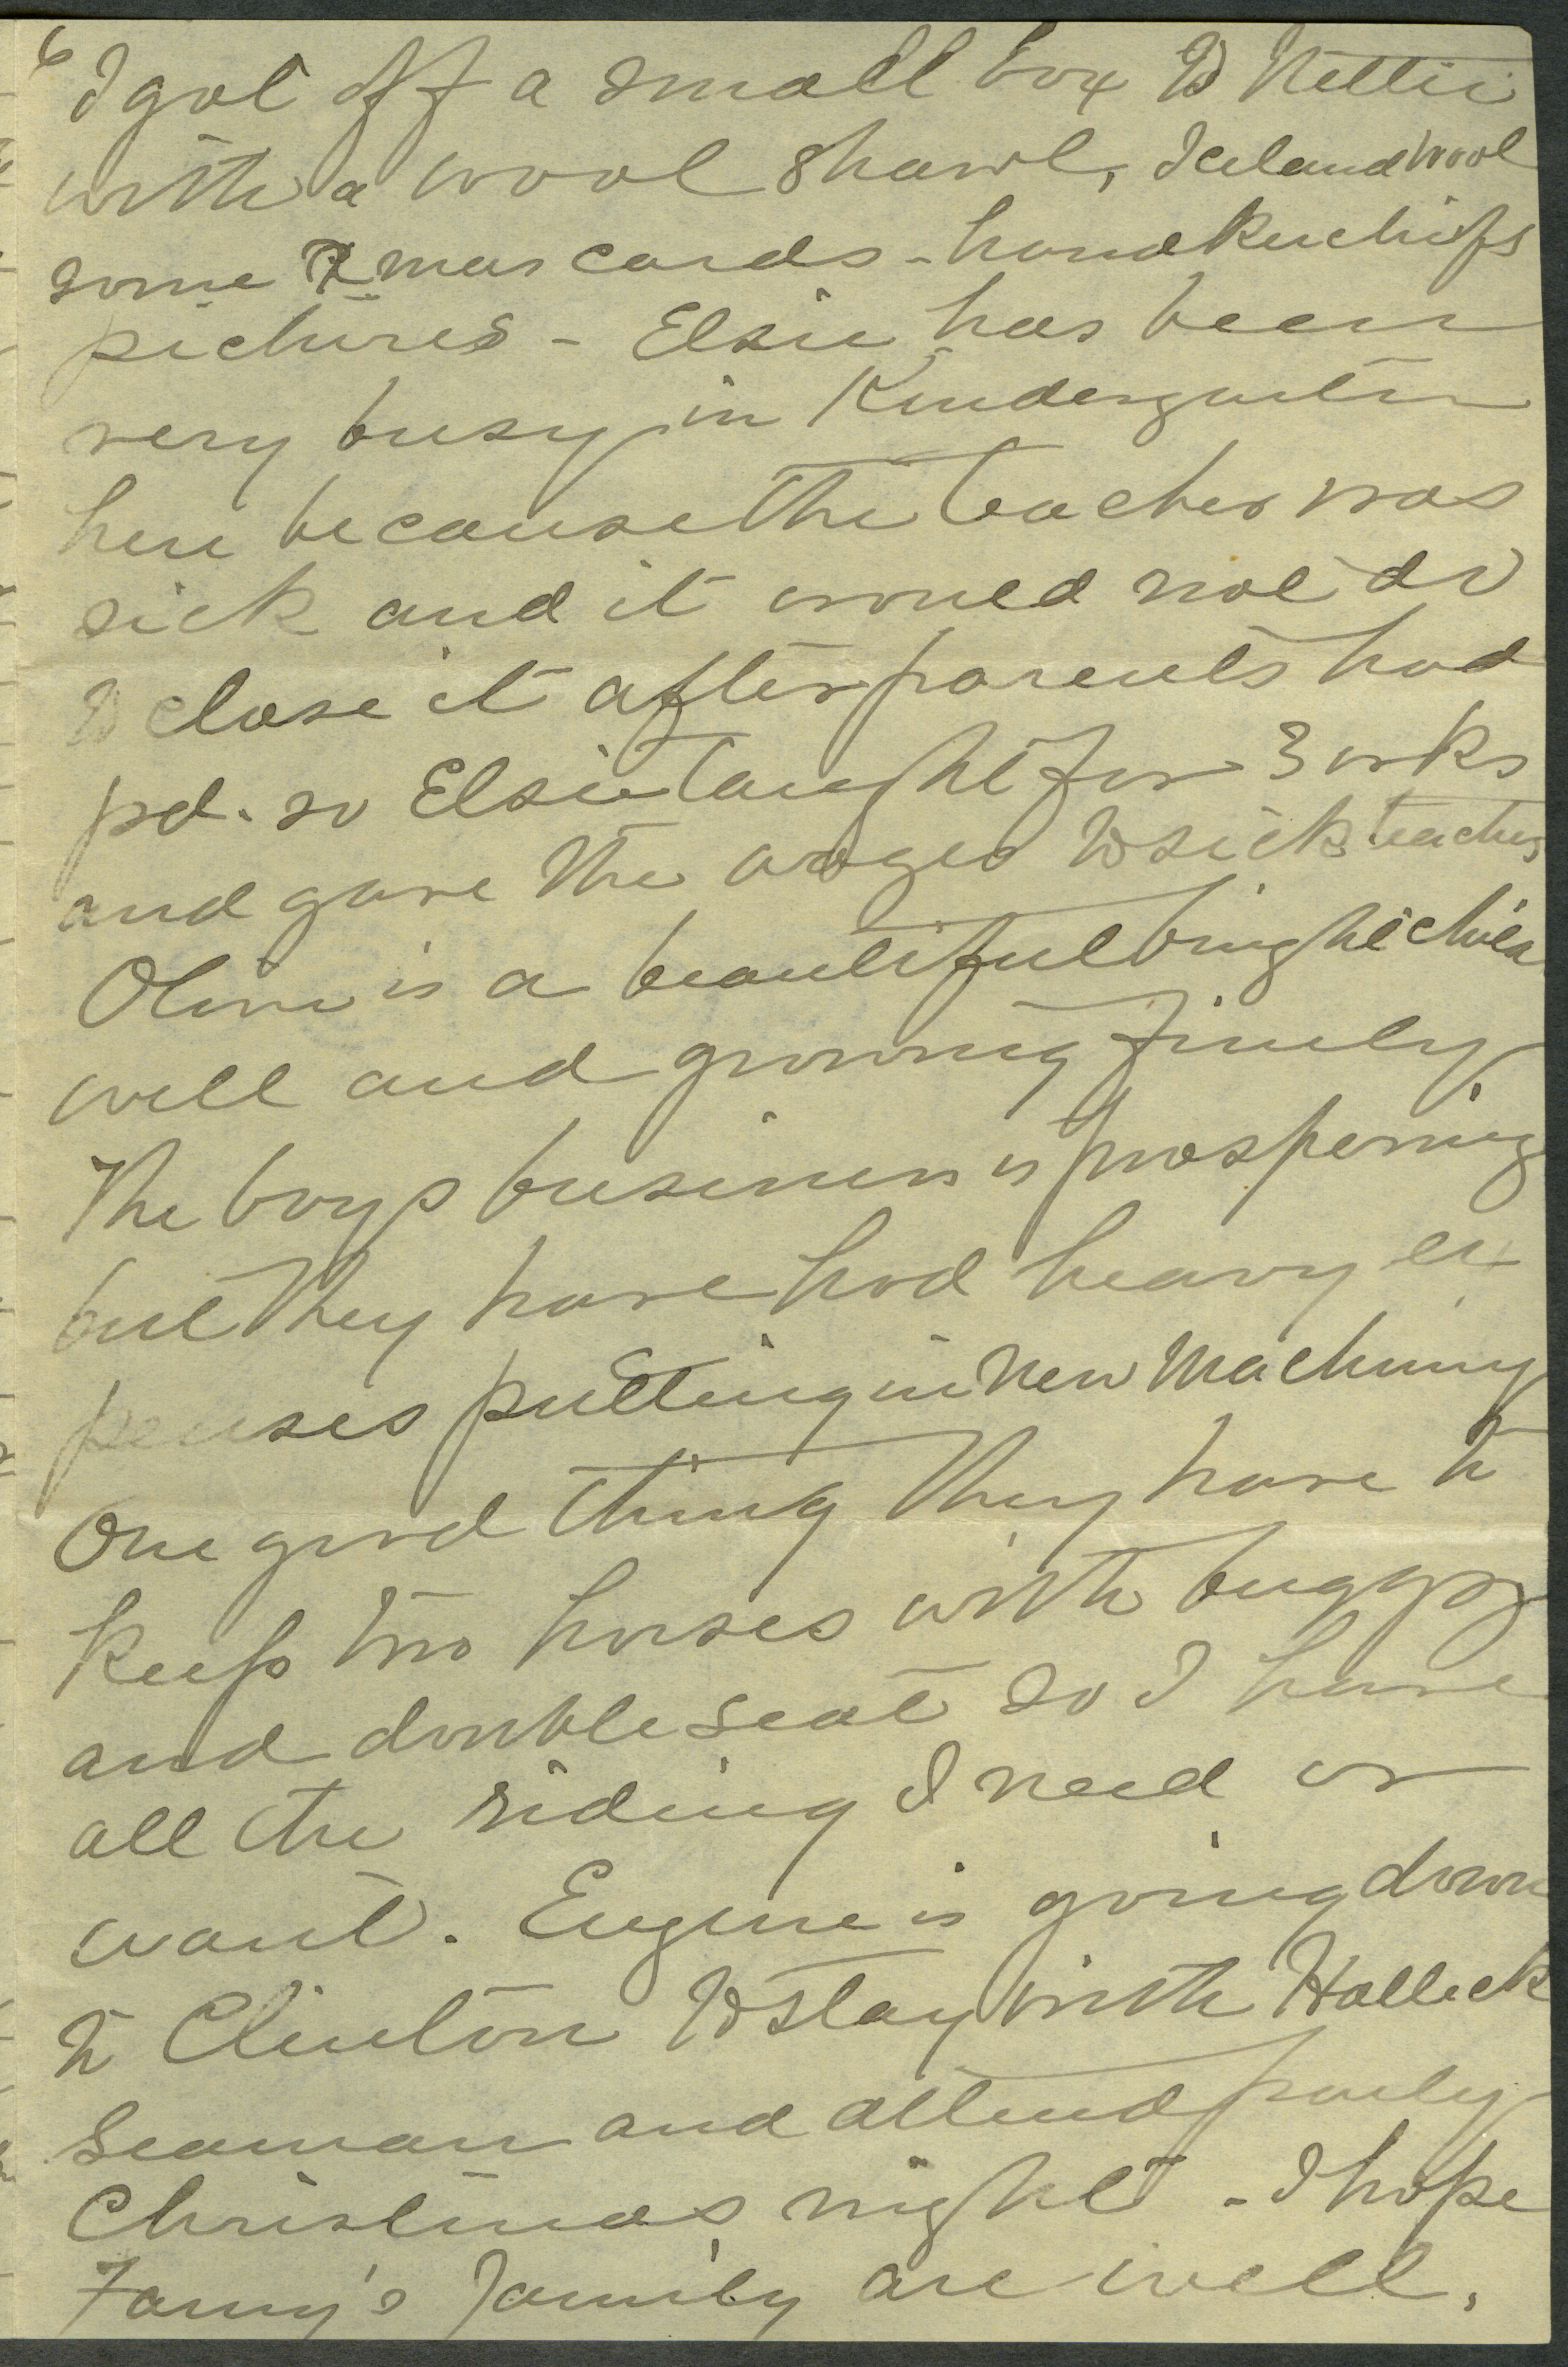 6
I got off a small box to Nettie
with a wool shawl, Iceland wool
some Xmas cards - handkerchiefs
pictures - Elsie has been
very busy in Kindergarten
here because the teacher was
sick and it would not do
to close it after parents had
pd. so Elsie taught for 3 wks
and gave the wages to sick teacher
Olive is a beautiful bright child
well and growing finely.
The boys business is prospering
but they have had heavy ex
penses putting in New Machinery
One good thing they have to
keep two horses with buggy
and double seat so I have
all the riding I need or
want. Eugene is going down
to Clinton to stay with Halleck
Seaman and attend party
Christmas night - I hope
Fanny's family are well.